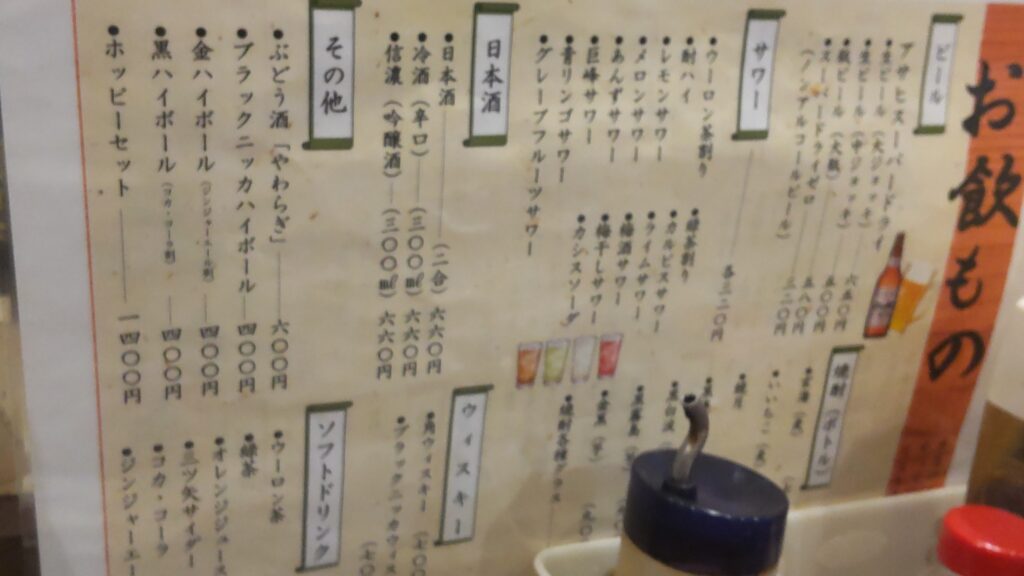 お飲もの
ビール
アサヒスーパードライ
●生ビール（大ジョッキ） 六五〇円
●生ビール（中ジョッキ） 五〇〇円
●瓶ビール（大瓶） 五八〇円
●スーパードライゼロ
（ノンアルコールビール） 三二〇円
サワー 各三二〇円
●ウーロン茶割り
●酎ハイ
●レモンサワー
●メロンサワー
●あんずサワー
●巨峰サワー
●青リンゴサワー
●グレープフルーツサワー
●緑茶割り
●カルピスサワー
●ライムサワー
●梅酒サワー
●梅干しサワー
●カシスソーダ
日本酒
●日本酒 （二合） 六六〇円
●冷酒（辛口） （三〇〇㎖） 六六〇円
●信濃（吟醸酒） （三〇〇㎖） 六六〇円
その他
●ぶどう酒「やわらぎ」 六〇〇円
●ブラックニッカハイボール 四〇〇円
●金ハイボール（ジンジャーエール割） 四〇〇円
●黒ハイボール（コカ・コーラ割） 四〇〇円
●ホッピーセット 四〇〇円
焼酎（ボトル）
●いいちこ（麦）
ウィスキー
●角ウィスキー
●ブラックニッカウィス
ソフトドリンク
●ウーロン茶
●緑茶
●オレンジジュース
●三ツ矢サイダー
●コカ・コーラ
●ジンジャーエー